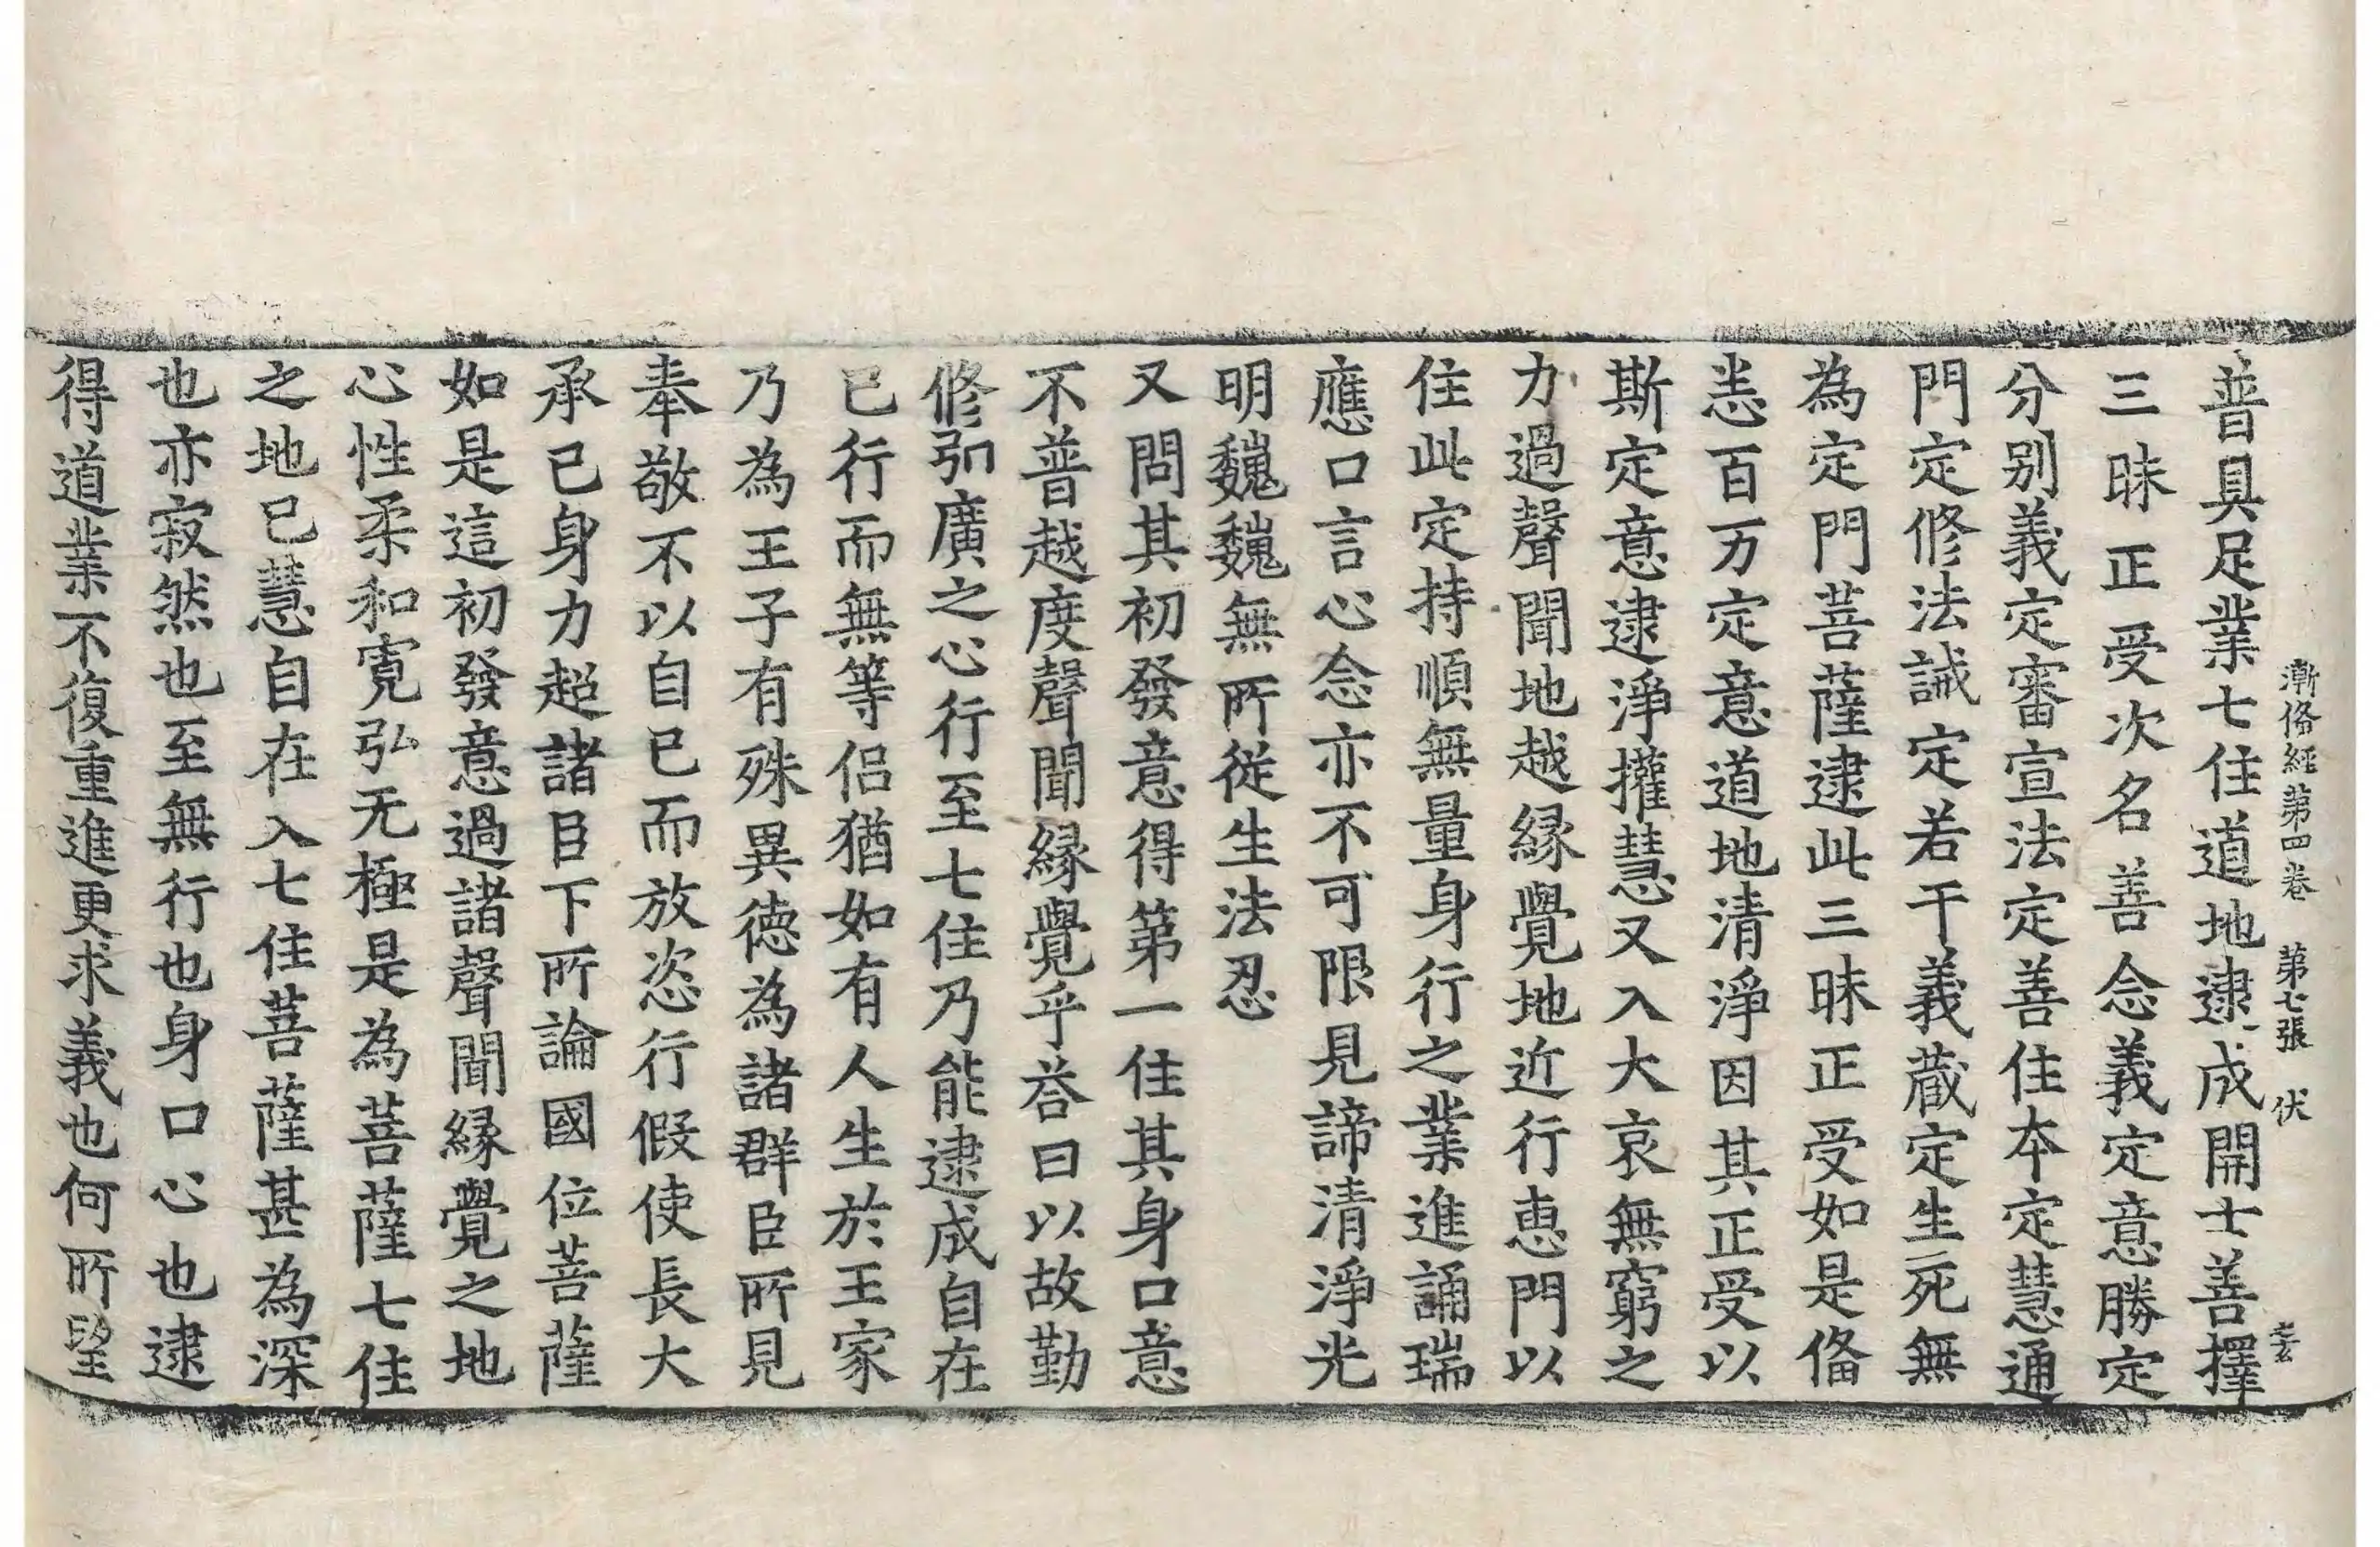 漸俻經第四卷 第七張 伏
普具足業七住道地逮成開士善擇
三昧正受次名善念義定意勝定
分別義定審宣法定善住本定慧通
門定修法誡定若干義藏定生死無
為定門菩薩逮此三昧正受如是俻
恚百万定意道地清淨因其正受以
斯定意逮淨㩲慧又入大哀無窮之
力過聲聞地越縁覺地近行恵門以
住此定持順無量身行之業進誦瑞
應口言心念亦不可限見諦清淨光
明巍巍無所從生法忍
又問其初發意得第一住其身口意
不普越度聲聞縁覺乎荅曰以故勤
修引廣之心行至七住乃能逮成自在
已行而無等侣猶如有人生於王家
乃為王子有殊異德為諸群臣所見
奉敬不以自已而放恣行假使長大
承已身力超諸臣下所論國位菩薩
如是這初發意過諸聲聞縁覺之地
心性柔和寬弘无極是為菩薩七住
之地已慧自在入七住菩薩甚為深
也亦寂然也至無行也身口心也逮
得道業不復重進更求義也何所望